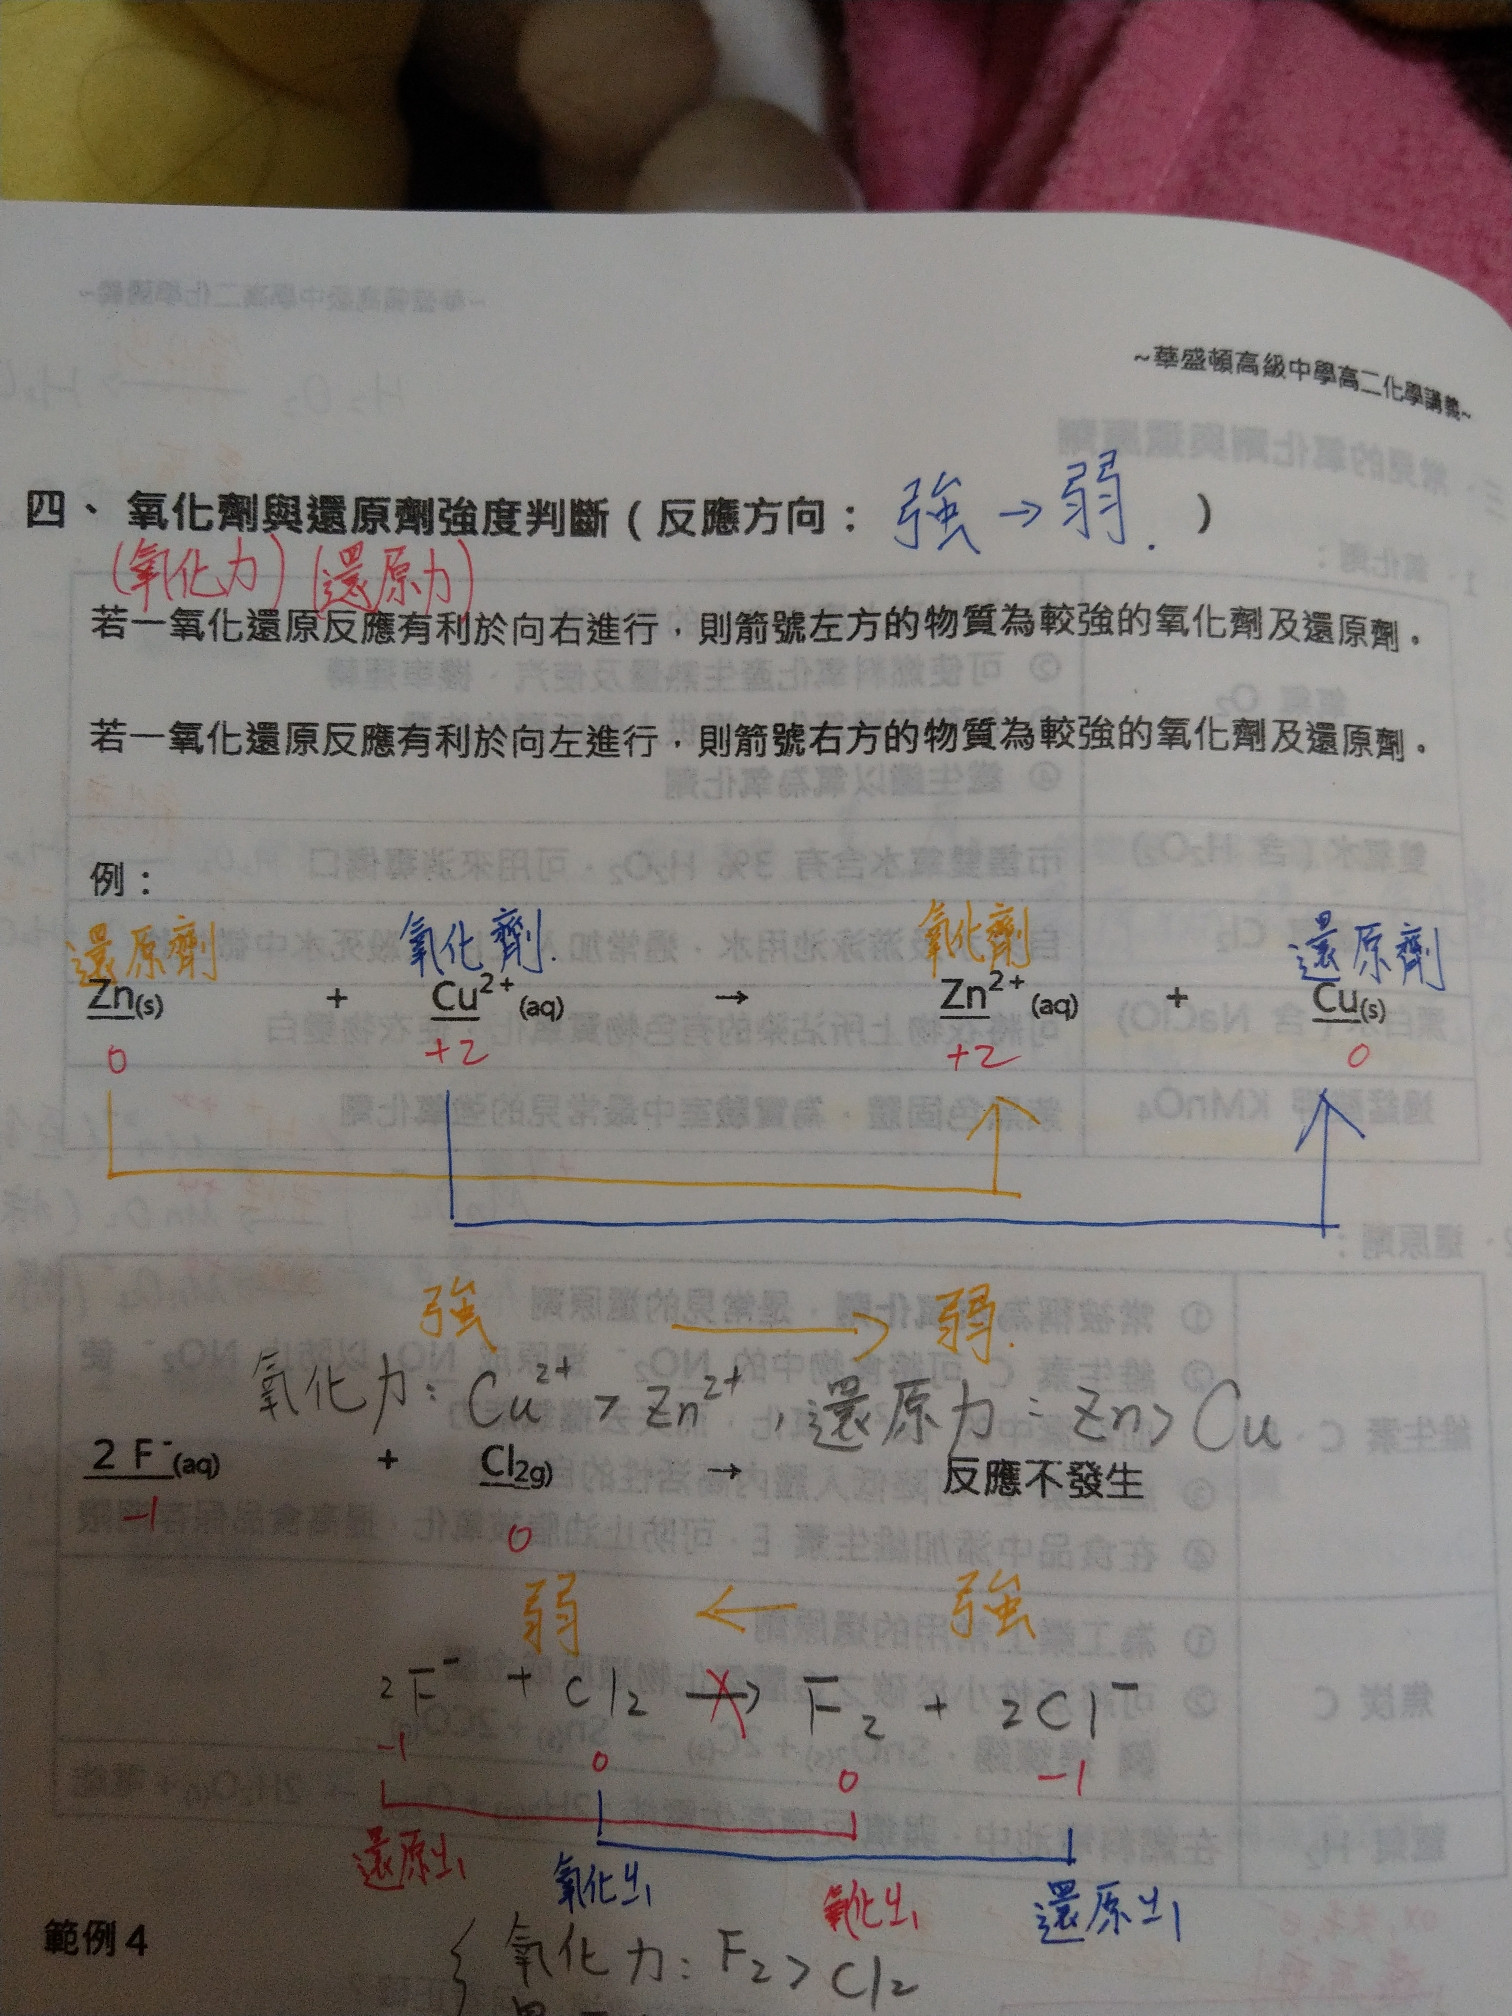 ~華盛頓高級中學高二化學講義~
四、 氧化劑與還原劑強度判斷（反應方向： 強 → 弱. ）
(氧化力) (還原力)
若一氧化還原反應有利於向右進行，則箭號左方的物質為較強的氧化劑及還原劑。
若一氧化還原反應有利於向左進行，則箭號右方的物質為較強的氧化劑及還原劑。
例：
還原劑 氧化劑. 氧化劑 還原劑
Zn(s) + Cu²⁺(aq) → Zn²⁺(aq) + Cu(s)
0 +2 +2 0
強 → 弱.
氧化力: Cu²⁺ > Zn²⁺, 還原力: Zn > Cu
2 F⁻(aq) + Cl₂g) → 反應不發生
-1 0
弱 ← 強
2F⁻ + Cl₂ → F₂ + 2Cl⁻
-1 0 0 -1
還原 氧化 氧化 還原
範例 4
氧化力: F₂ > Cl₂